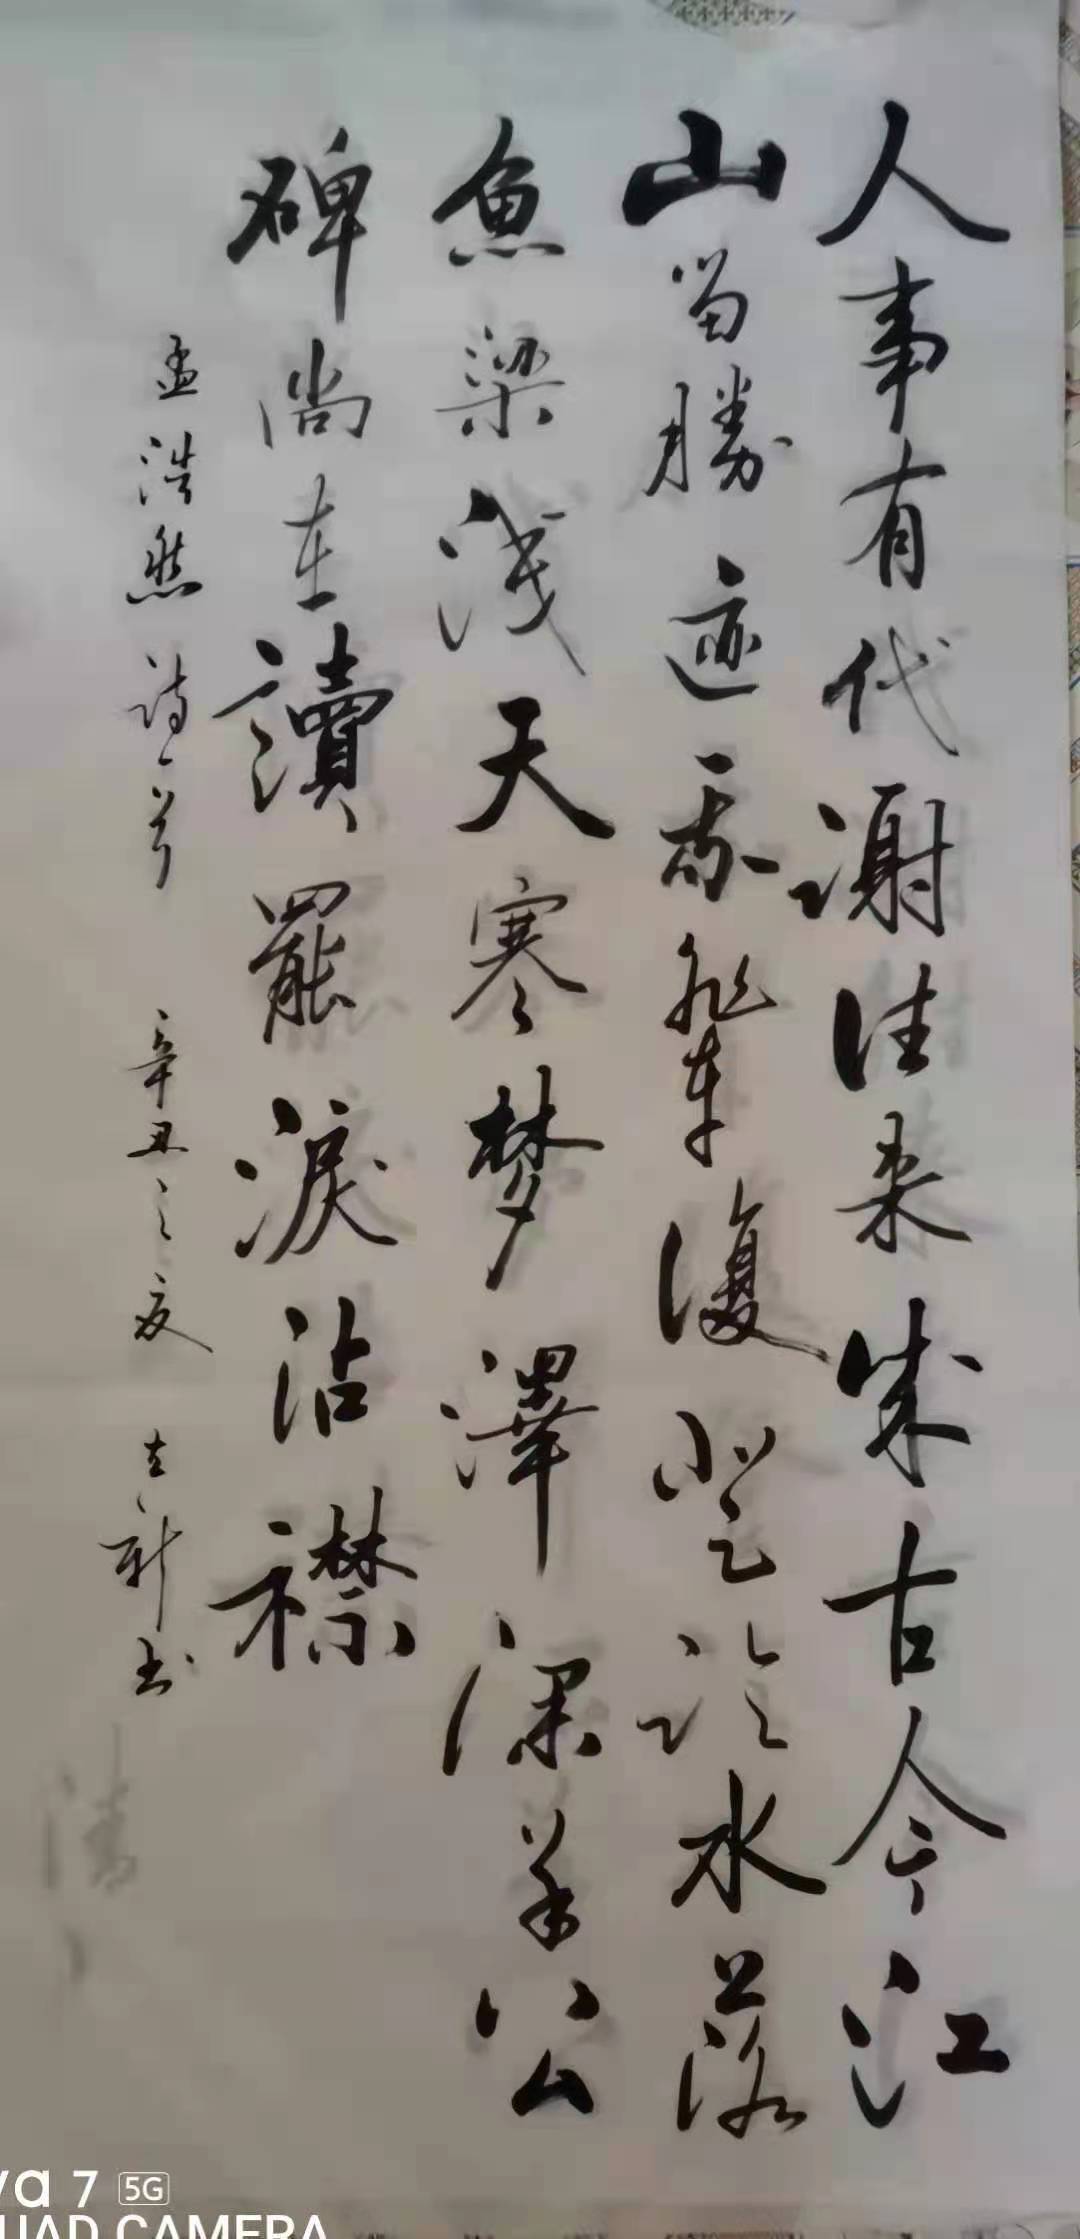 人事有代謝往来成古今江
山留勝迹我輩復登临水落
魚梁浅天寒梦澤深羊公
碑尚在讀罷淚沾襟
孟浩然詩一首 辛丑之夏 志新书
va 7 5G
UAD CAMERA